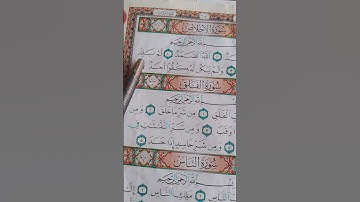 سُورَةُ الْإِخْلَاصِ
بِسْمِ اللَّهِ الرَّحْمَٰنِ الرَّحِيمِ
اللَّهُ الصَّمَدُ ۝ لَمْ يَلِدْ
وَلَمْ يَكُن لَّهُ كُفُوًا أَحَدٌ
سُورَةُ الْفَلَقِ
بِسْمِ اللَّهِ الرَّحْمَٰنِ الرَّحِيمِ
الْفَلَقِ ۝ مِن شَرِّ مَا خَلَقَ ۝ وَمِن
وَقَبَ ۝ وَمِن شَرِّ النَّفَّاثَاتِ فِي
وَمِن شَرِّ حَاسِدٍ إِذَا حَسَدَ
سُورَةُ النَّاسِ
بِسْمِ اللَّهِ الرَّحْمَٰنِ الرَّحِيمِ
النَّاسِ ۝ مَلِكِ النَّاسِ ۝ إِلَٰهِ